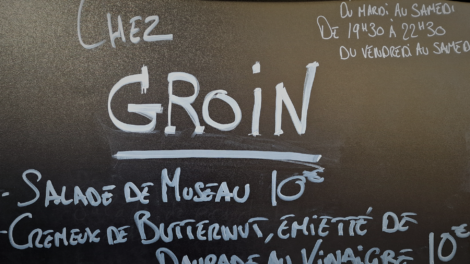 CHEZ
GROIN
DU MARDI AU SAMEDI
DE 19H30 À 22H30
DU VENDREDI AU SAMEDI
- SALADE DE MUSEAU 10€
- CREMEUX DE BUTTERNUT, ÉMIETTÉ DE
DAURADE AU VINAIGRE 10€